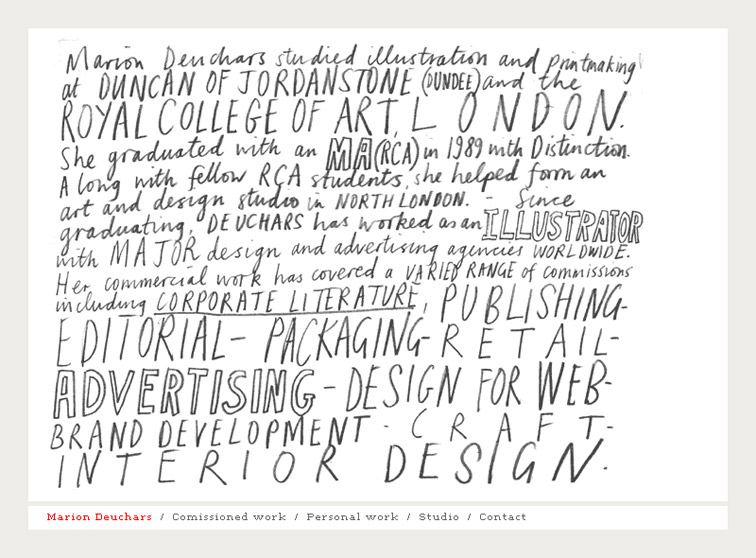 Marion Deuchars studied illustration and printmaking
at DUNCAN OF JORDANSTONE (DUNDEE) and the
ROYAL COLLEGE OF ART, LONDON.
She graduated with an MA (RCA) in 1989 with Distinction.
A long with fellow RCA students, she helped form an
art and design studio in NORTH LONDON. - Since
graduating, DEUCHARS has worked as an ILLUSTRATOR
with MAJOR design and advertising agencies WORLDWIDE.
Her commercial work has covered a VARIED RANGE of commissions
including CORPORATE LITERATURE, PUBLISHING-
EDITORIAL- PACKAGING- RETAIL-
ADVERTISING-DESIGN FOR WEB-
BRAND DEVELOPMENT - CRAFT-
INTERIOR DESIGN.
Marion Deuchars / Comissioned work / Personal work / Studio / Contact